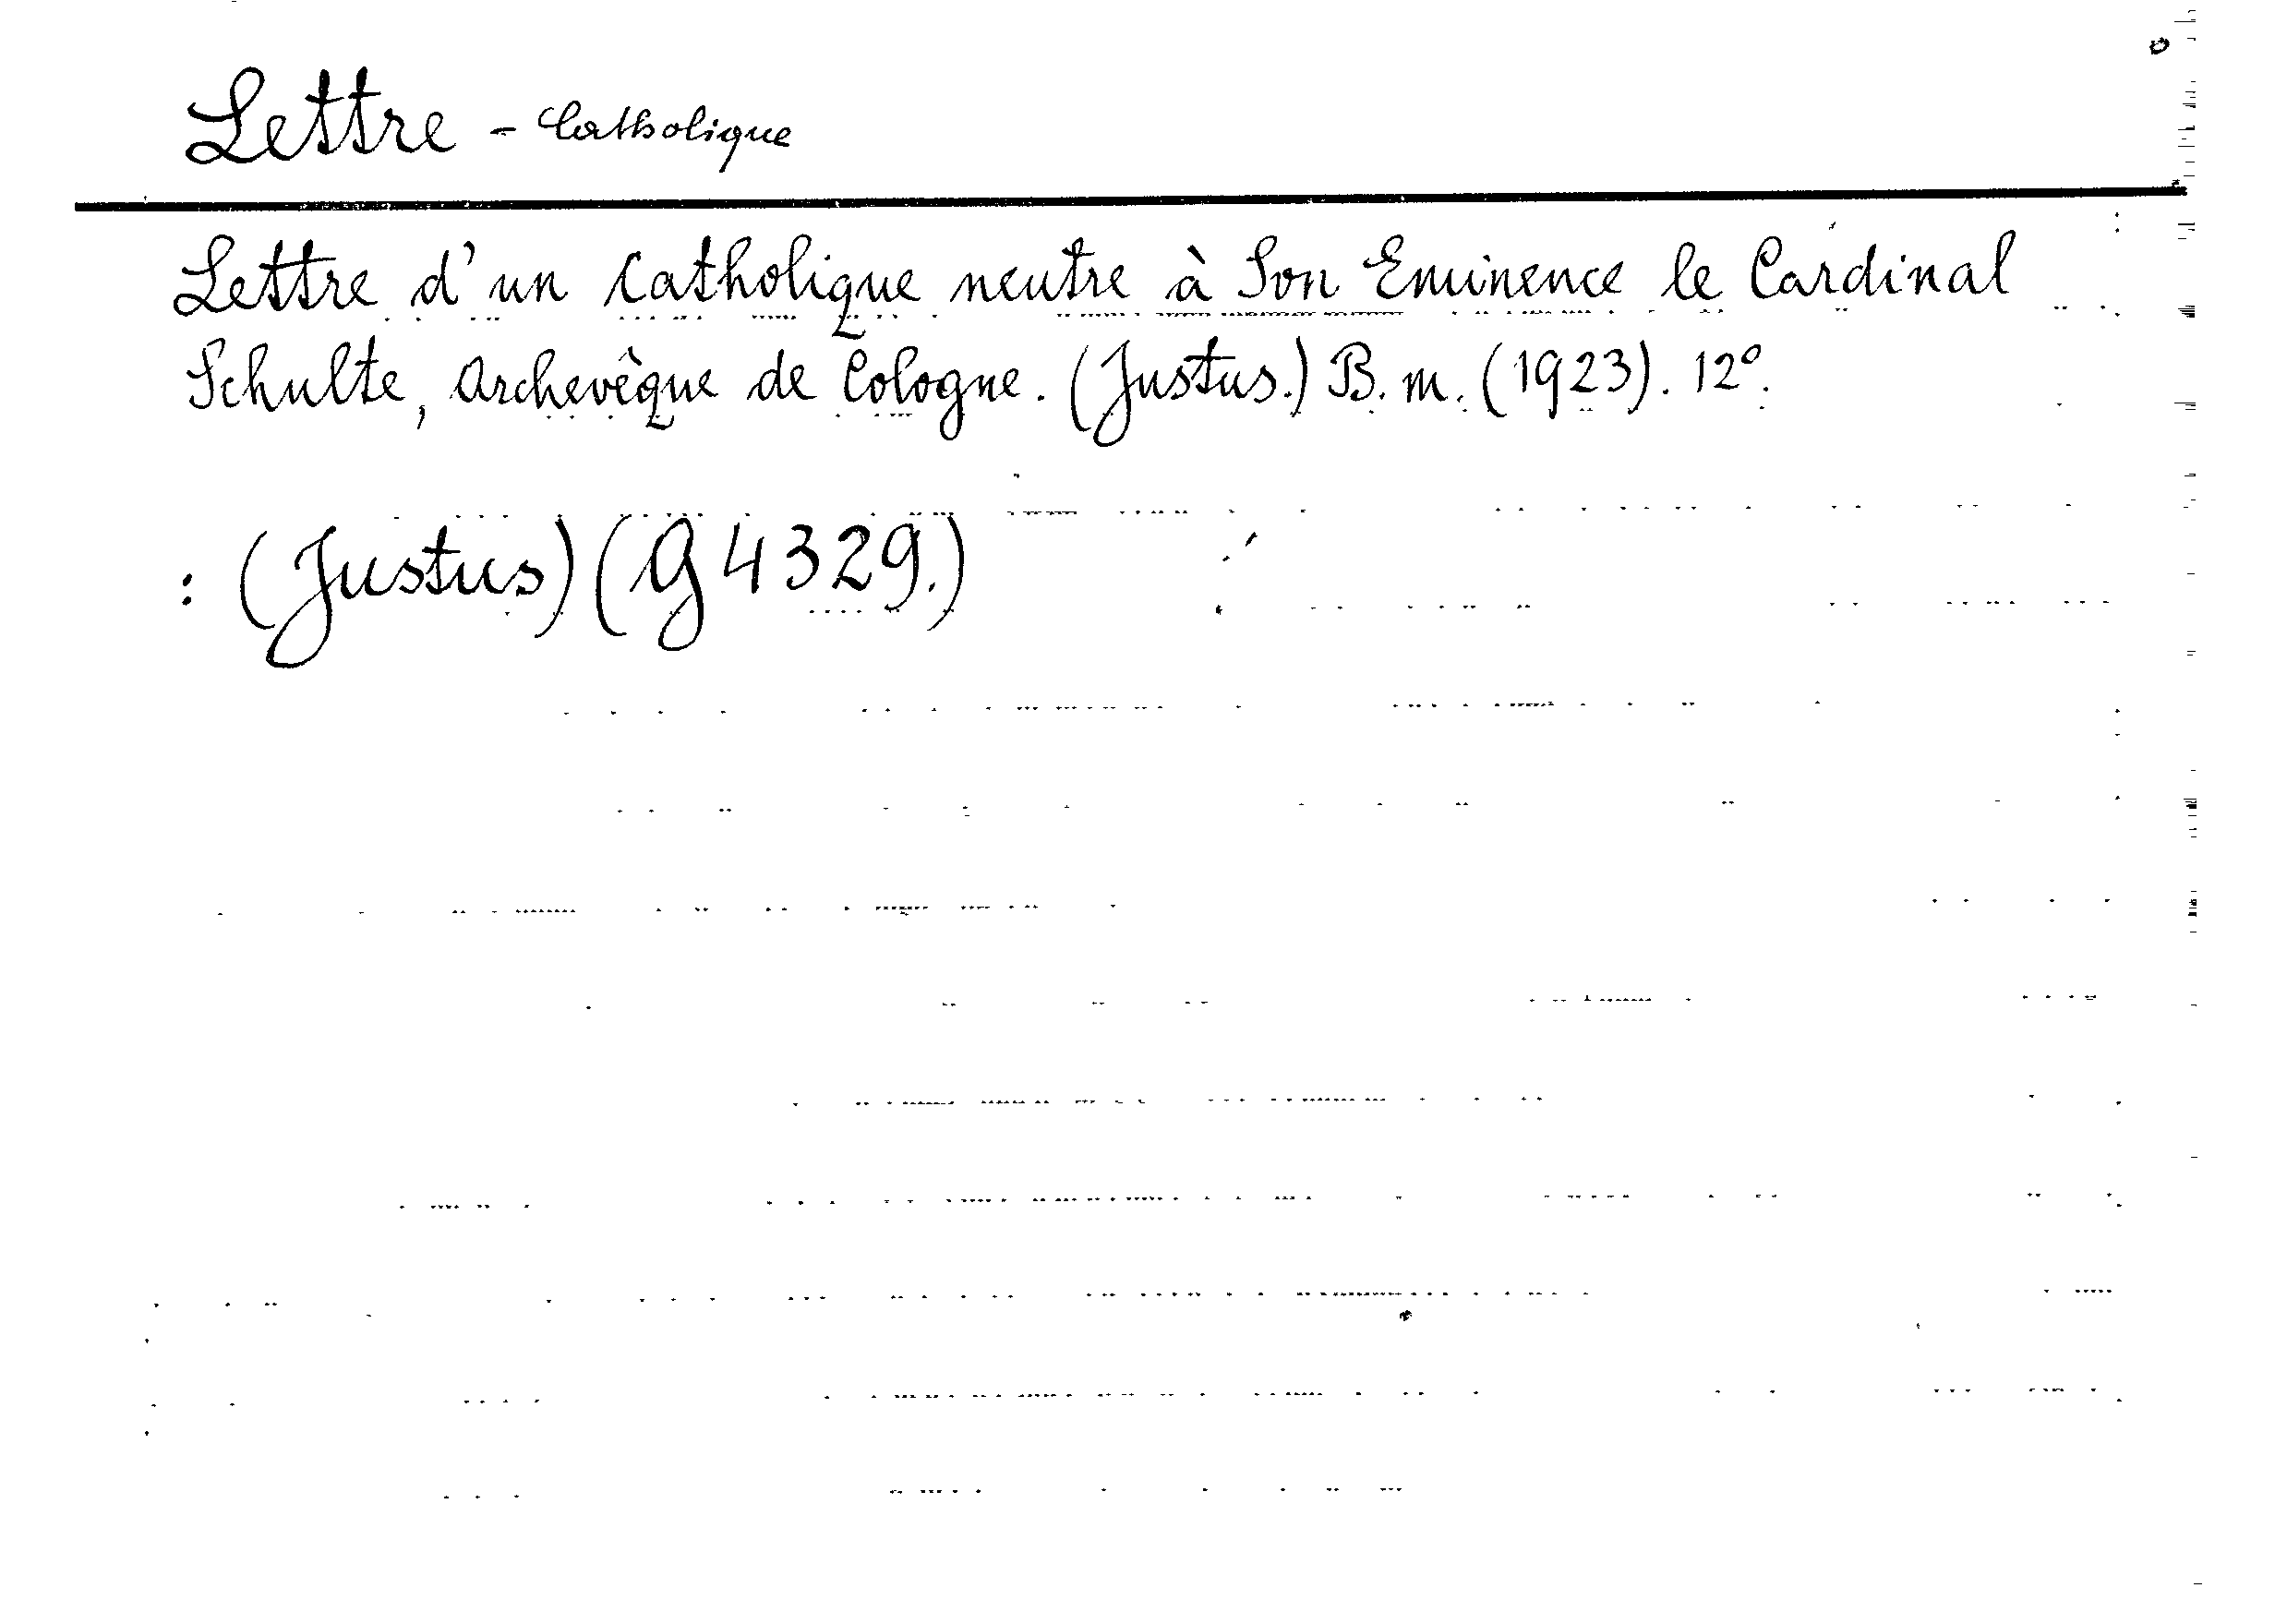 Lettre - Catholique
Lettre d'un Catholique neutre à Son Eminence le Cardinal
Schulte, Archevêque de Cologne. (Justus.) B. m. (1923). 12°.
: (Justus) (G 4329.)